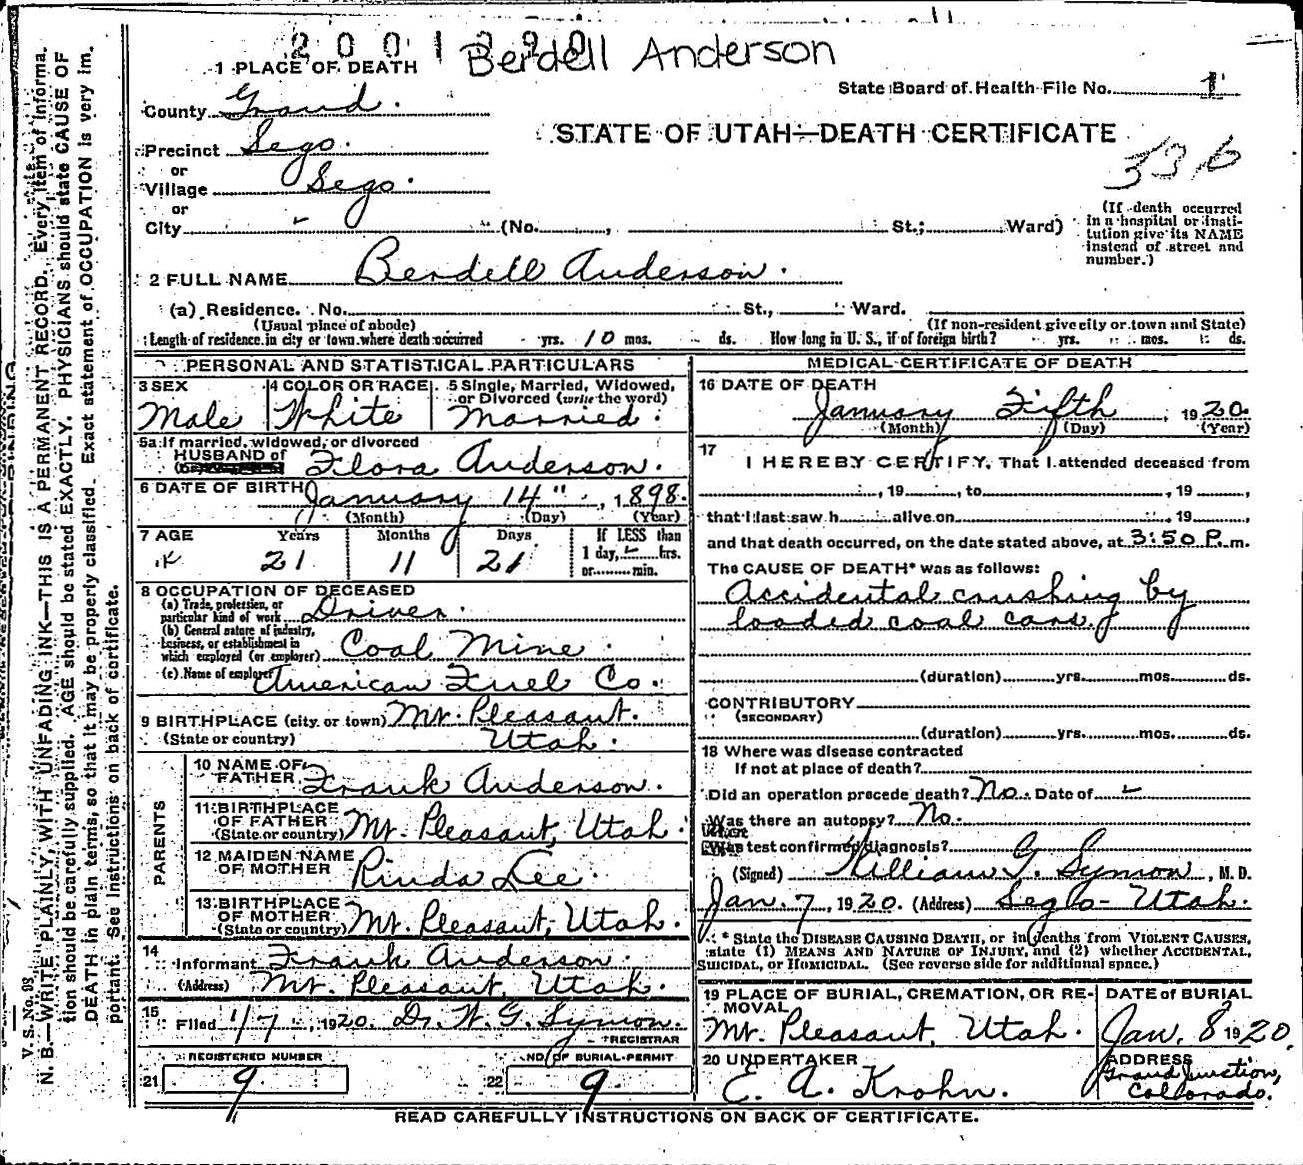 2001390 Berdell Anderson
1 PLACE OF DEATH
State Board of Health File No. 1
County Grand.
STATE OF UTAH—DEATH CERTIFICATE
336
Precinct Sego.
or
Village Sego.
or
City (No. , St.; Ward)
(If death occurred in a hospital or institution give its NAME instead of street and number.)
2 FULL NAME Berdell Anderson.
(a) Residence. No. St., Ward.
(Usual place of abode) (If non-resident give city or town and State)
Length of residence in city or town where death occurred yrs. 10 mos. ds. How long in U. S., if of foreign birth? yrs. mos. ds.
PERSONAL AND STATISTICAL PARTICULARS
3 SEX 4 COLOR OR RACE 5 Single, Married, Widowed,
or Divorced (write the word)
Male White Married.
5a If married, widowed, or divorced
HUSBAND of
Flora Anderson.
6 DATE OF BIRTH January 14" , 1898.
(Month) (Day) (Year)
7 AGE Years Months Days If LESS than
21 11 21 1 day, hrs.
or min.
8 OCCUPATION OF DECEASED
(a) Trade, profession, or
particular kind of work Driver.
(b) General nature of industry,
business, or establishment in
which employed (or employer) Coal Mine.
(c) Name of employer American Fuel Co.
9 BIRTHPLACE (city or town) Mt. Pleasant.
(State or country) Utah.
PARENTS
10 NAME OF
FATHER Frank Anderson.
11 BIRTHPLACE
OF FATHER
(State or country) Mt. Pleasant, Utah.
12 MAIDEN NAME
OF MOTHER Rinda Lee.
13 BIRTHPLACE
OF MOTHER
(State or country) Mt. Pleasant, Utah.
14
Informant Frank Anderson.
(Address) Mt. Pleasant, Utah.
15
Filed 1/7, 1920. Dr. W. G. Symon.
REGISTRAR
REGISTERED NUMBER NO. OF BURIAL PERMIT
21 9. 22 9.
MEDICAL CERTIFICATE OF DEATH
16 DATE OF DEATH
January Fifth , 1920.
(Month) (Day) (Year)
17
I HEREBY CERTIFY, That I attended deceased from
, 19 , to , 19 ,
that I last saw h alive on , 19 ,
and that death occurred, on the date stated above, at 3:50 P. m.
The CAUSE OF DEATH* was as follows:
Accidental crushing by
loaded coal cars.
(duration) yrs. mos. ds.
CONTRIBUTORY
(SECONDARY)
(duration) yrs. mos. ds.
18 Where was disease contracted
If not at place of death?
Did an operation precede death? No. Date of
Was there an autopsy? No.
What test confirmed diagnosis?
(Signed) William G. Symon , M. D.
Jan. 7 , 1920. (Address) Sego - Utah.
* State the DISEASE CAUSING DEATH, or in deaths from VIOLENT CAUSES,
state (1) MEANS AND NATURE OF INJURY, and (2) whether ACCIDENTAL,
SUICIDAL, or HOMICIDAL. (See reverse side for additional space.)
19 PLACE OF BURIAL, CREMATION, OR RE-
MOVAL DATE of BURIAL
Mt. Pleasant, Utah. Jan. 8 1920.
20 UNDERTAKER ADDRESS
E. A. Krohn. Grand Junction,
Collorado.
READ CAREFULLY INSTRUCTIONS ON BACK OF CERTIFICATE.
V. S. No. 98
N. B.—WRITE PLAINLY, WITH UNFADING INK—THIS IS A PERMANENT RECORD. Every item of informa-
tion should be carefully supplied. AGE should be stated EXACTLY. PHYSICIANS should state CAUSE OF
DEATH in plain terms, so that it may be properly classified. Exact statement of OCCUPATION is very im-
portant. See instructions on back of certificate.